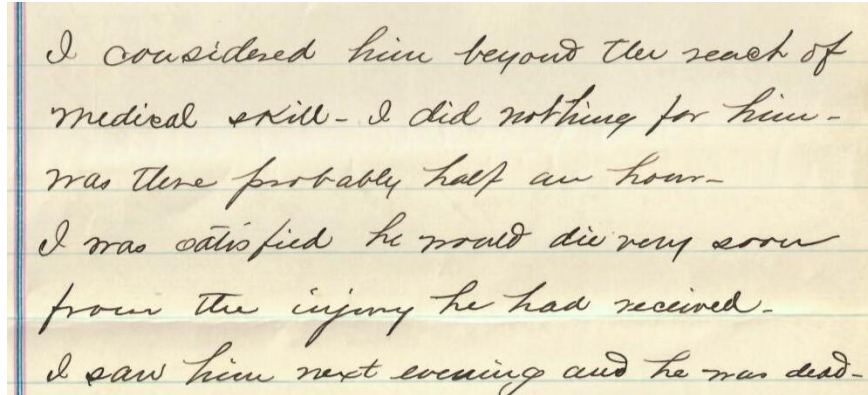 I considered him beyond the reach of
medical skill - I did nothing for him -
was there probably half an hour -
I was satisfied he would die very soon
from the injury he had received -
I saw him next evening and he was dead -